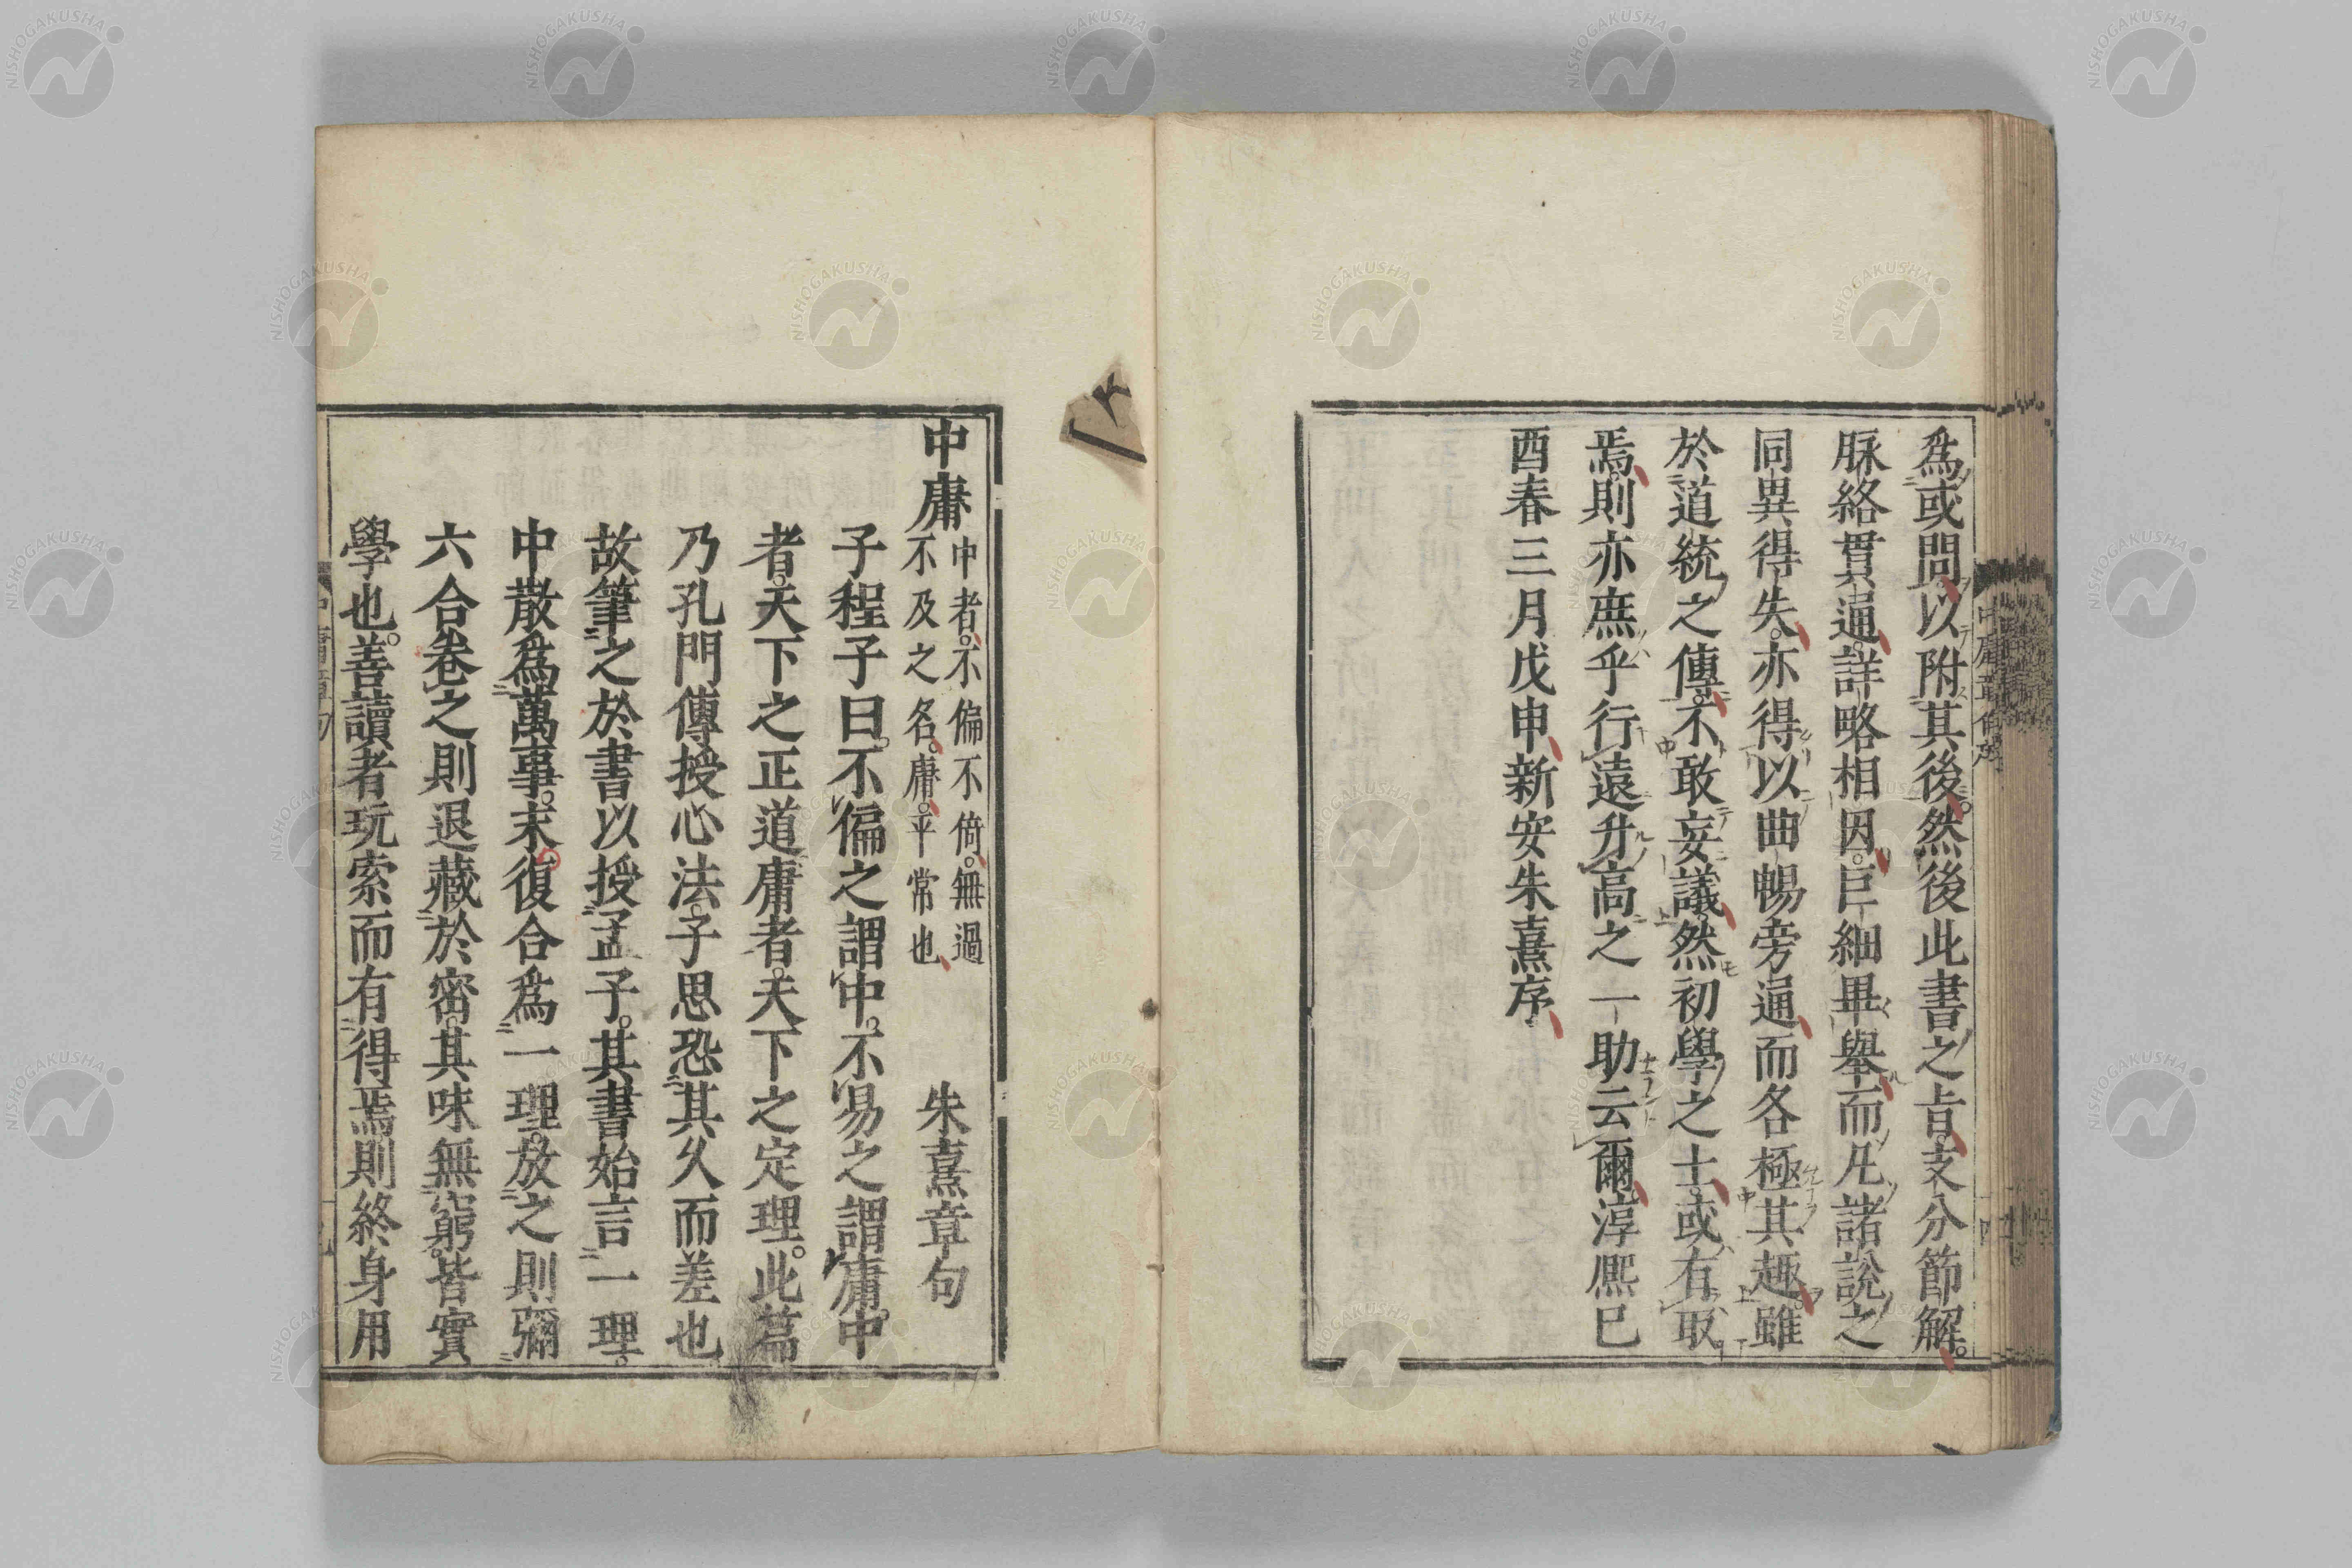 爲或問以附其後。然後此書之旨。支分節解。
脉絡貫通。詳略相因。巨細畢舉。而凡諸說之
同異得失。亦得以曲暢旁通。而各極其趣。雖
於道統之傳。不敢妄議。然初學之士。或有取
焉。則亦庶乎行遠升高之一助云爾。淳熈巳
酉春三月戊申新安朱熹序
中庸
中者。不偏不倚。無過
不及之名。庸。平常也
朱熹章句
子程子曰。不偏之謂中。不易之謂庸。中
者。天下之正道。庸者。天下之定理。此篇
乃孔門傳授心法。子思恐其久而差也。
故筆之於書以授孟子。其書始言一理。
中散爲萬事。末復合爲一理。放之則彌
六合。卷之則退藏於密。其味無窮。皆實
學也。善讀者玩索而有得焉。則終身用
NISHOGAKUSHA